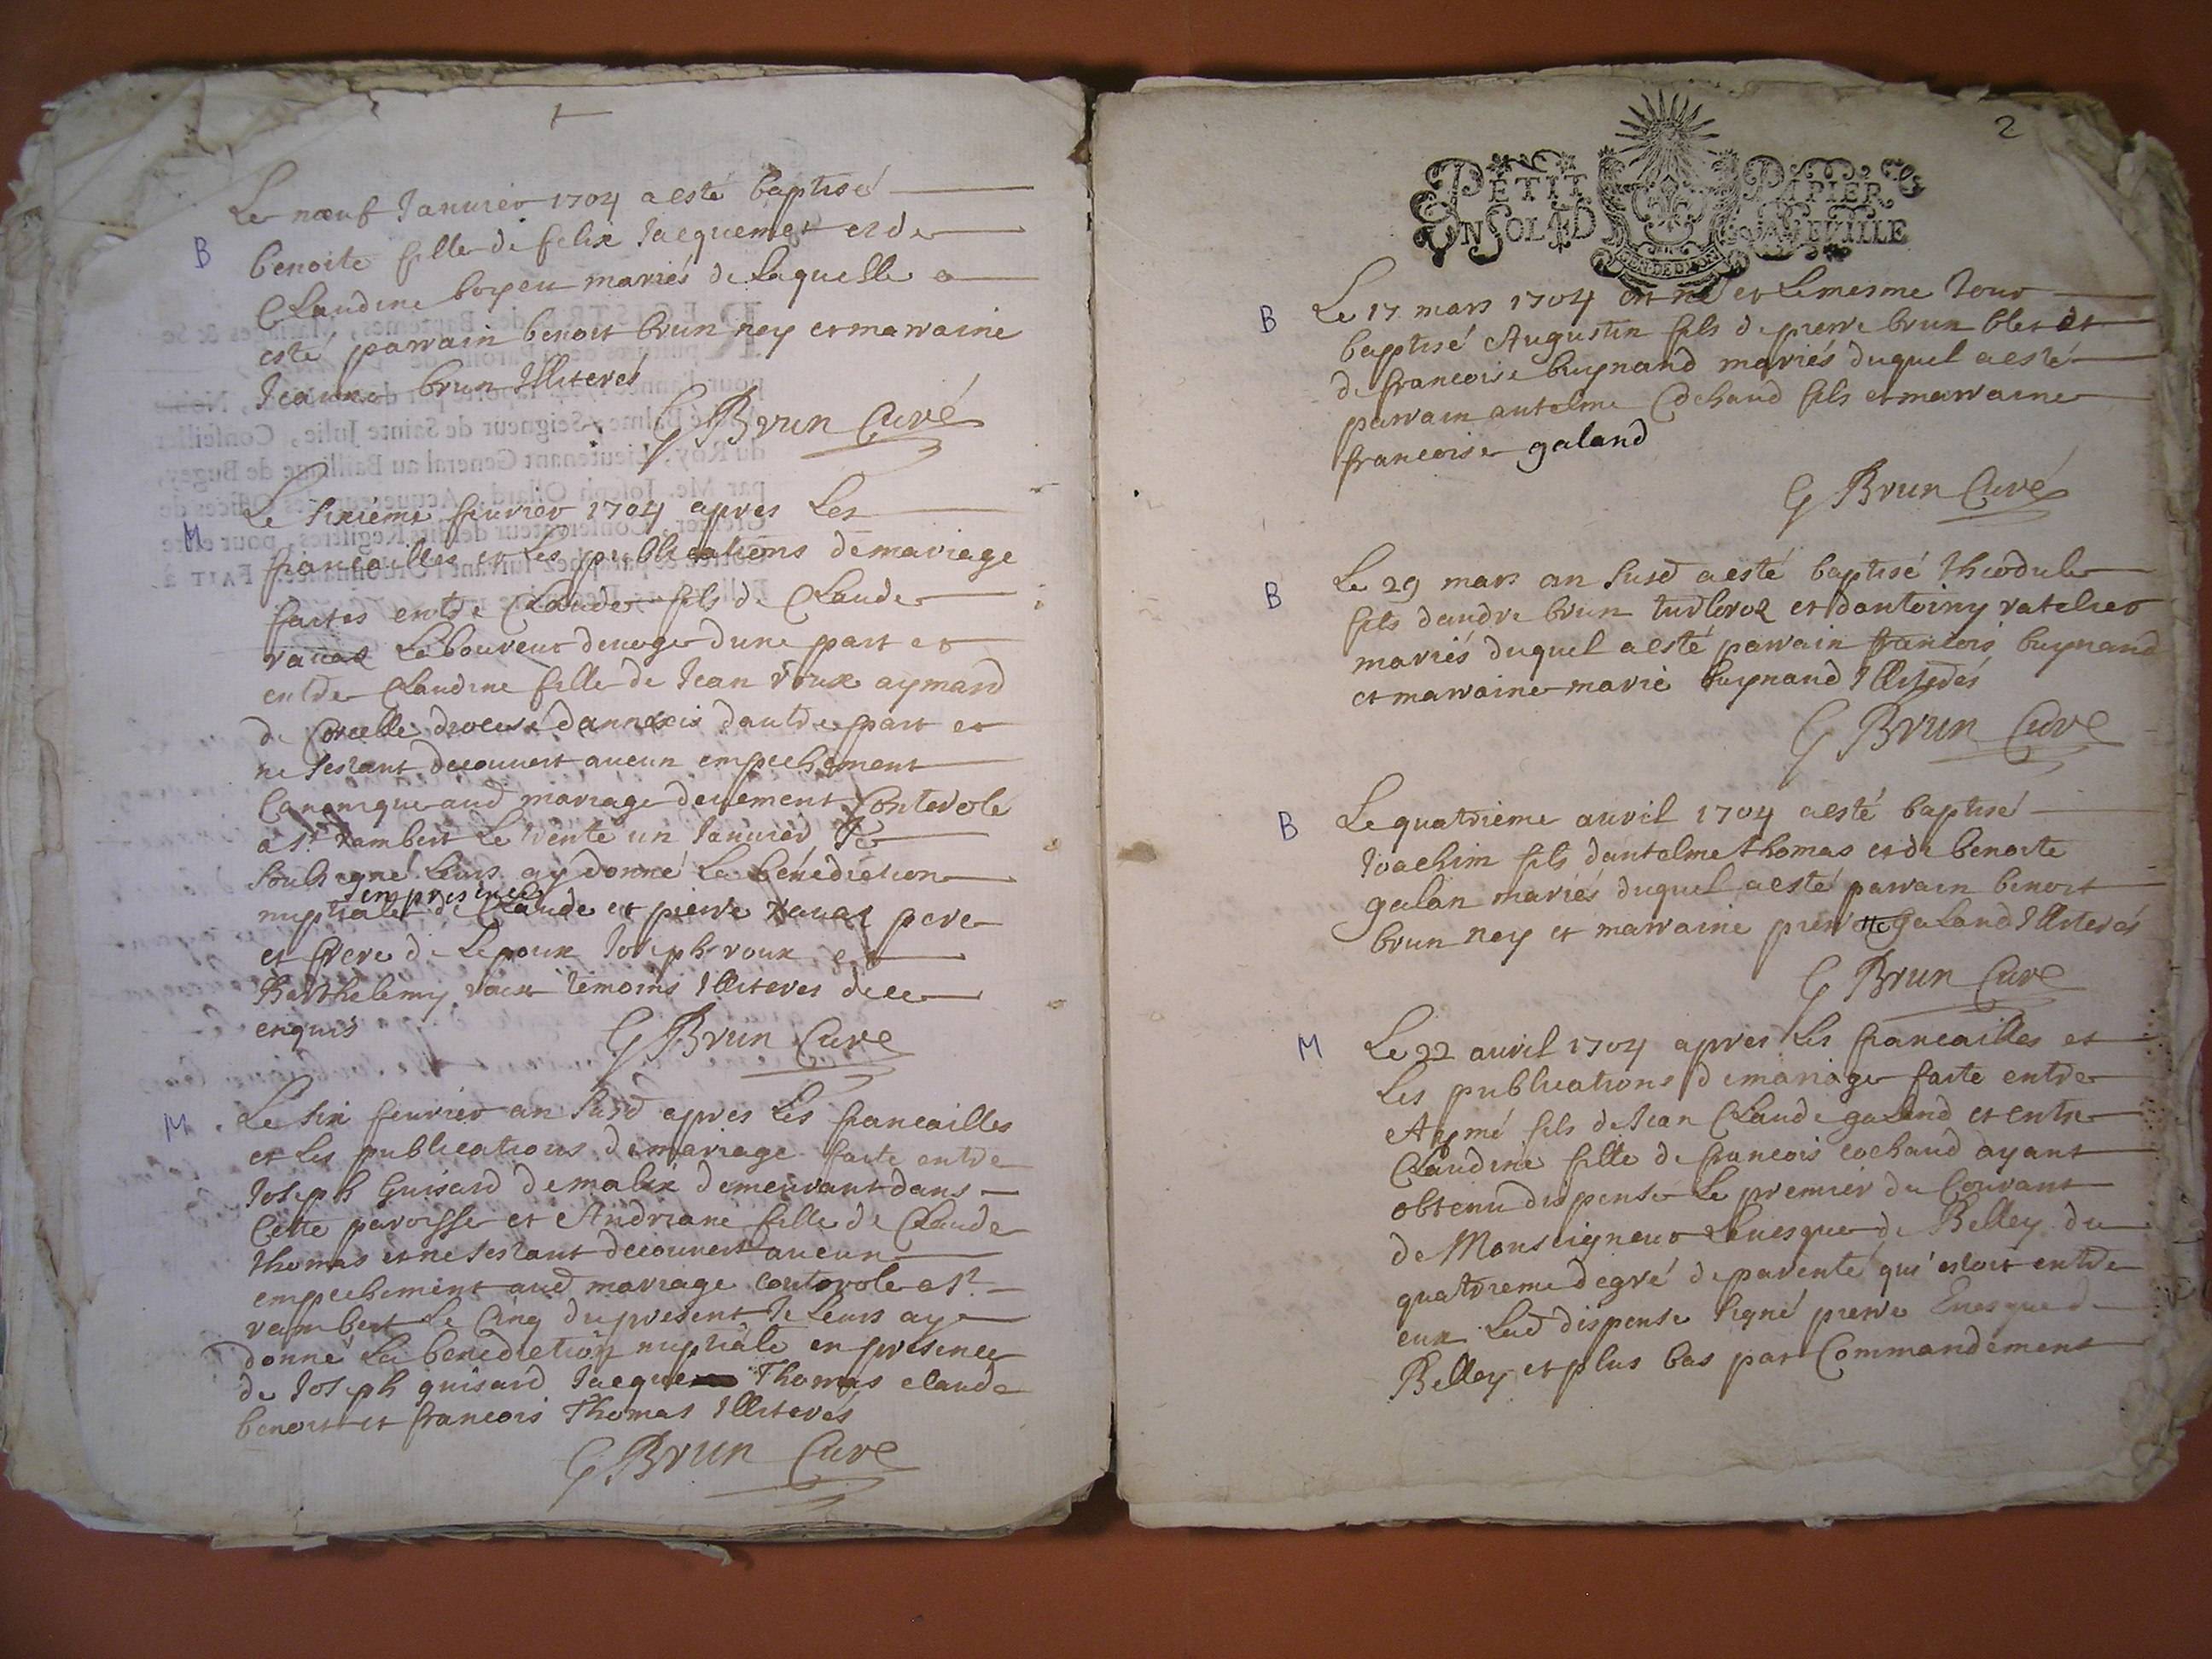 Le nœuf Januier 1704 a esté baptisé
B
benoite fille de felix Jacquemet et de
Claudine boyeu mariés de laquelle a
esté parrain benoit brun ney et marraine
Jeanne brun Illiterés
G Brun Curé
Le sixiéme feurier 1704 apres Les
M
fiancailles et Les publications de mariage
faites entre Claude fils de Claude
rauaz Laboureur doucge dune part et
entre Claudine fille de Jean roux aymard
de Corcelle diocese dannexis dautre part et
ne sestant decouuert aucun empechement
Canonique aud mariage deuement Controlé
a st rambert Le trente un Januier Je
soubsigné Leurs ay donné La bénédiction
en presence
nuptiale de Claude et pierre rauaz pere
et frere de Lepoux Joseph roux et
Barthelemy roux témoins Illiteres de ce
enquis
G Brun Cure
M
Le six feurier an susd apres Les fiancailles
et Les publications de mariage faite entre
Joseph Guisard de malix demeurant dans
Cette paroisse et Andriane fille de Claude
thomas et ne sestant decouuert aucun
empechement aud mariage controle a st
rambert Le Cinq du present Je Leurs ay
donné La benediction nuptiale en présence
de Joseph guisard Jacque Thomas claude
benoit et francois Thomas Illiteres
G Brun Cure
2
PETIT PAPIER
UN SOL LA FEVILLE
GEN. DE DIJON
B
Le 17 mars 1704 est né et Lemesme Jour
baptisé Augustin fils de pierre brun blet et
de francoise buynand mariés duquel a esté
parrain antelme Cochaud fils et marraine
francoise galand
G Brun Curé
B
Le 29 mars an susd a esté baptisé théodule
fils dandre brun et dantoiny ratelier
mariés duquel a esté parrain francois buynand
et marraine marie buynand Illiterés
G Brun Cure
B
Le quatrieme auril 1704 a esté baptisé
Joachim fils dantelme thomas et de benoite
galan mariés duquel a esté parrain benoit
brun ney et marraine pierrotte Galand Illiterés
G Brun Cure
M
Le 22 auril 1704 apres Les fiancailles et
Les publications de mariage faite entre
Aymé fils de Jean Claude galand et entre
Claudine fille de francois cochaud ayant
obtenu dispense Le premier du Courant
de Monseigneur Leuesque de Belley du
quatrieme degré de parenté qui estoit entre
eux Lad dispense signé pierre Euesque de
Belley et plus bas par Commandement